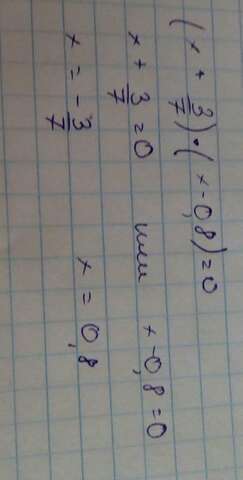 (x + 3/7) • (x - 0,8) = 0
x + 3/7 = 0 или x - 0,8 = 0
x = - 3/7 x = 0,8